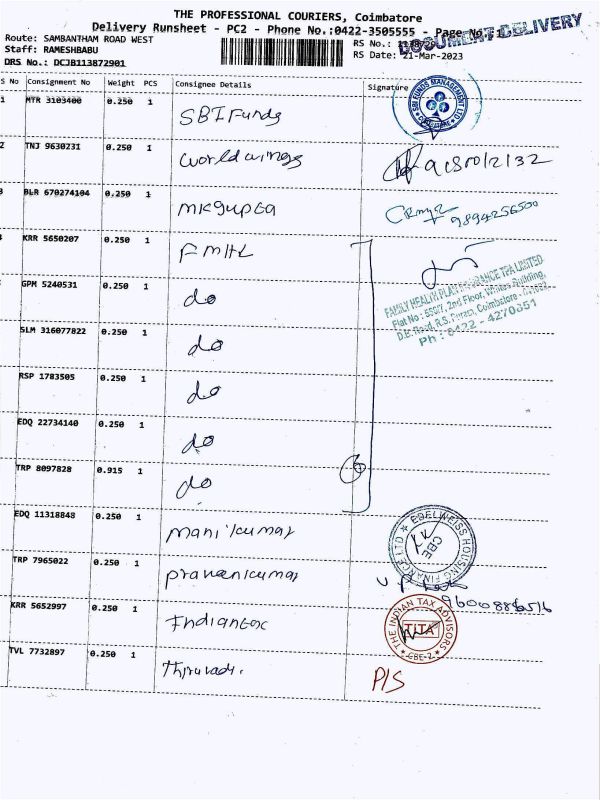 THE PROFESSIONAL COURIERS, Coimbatore
Delivery Runsheet - PC2 - Phone No.:0422-3505555 - Page No.:1
DOCUMENT DELIVERY
Route: SAMBANTHAM ROAD WEST
Staff: RAMESHBABU
DRS No.: DCJB113872901
RS No.:
RS Date: 21-Mar-2023
S No Consignment No Weight PCS Consignee Details Signature
1 MTR 3103400 0.250 1 SBI Funds
SBI FUNDS MANAGEMENT LTD
2 TNJ 9630231 0.250 1 World wings
3 BLR 670274104 0.250 1 MK gupta
9894256500
4 KRR 5650207 0.250 1 FMHL
GPM 5240531 0.250 1 do
FAMILY HEALTH PLAN INSURANCE TPA LIMITED
Flat No: 2nd Floor, Building,
D.B. Road, R.S. Puram, Coimbatore
Ph : 0422 - 4270351
SLM 316077822 0.250 1 do
RSP 1783505 0.250 1 do
EDQ 22734140 0.250 1 do
TRP 8097828 0.915 1 do
6
EDQ 11318848 0.250 1 Manikumar
EDELWEISS HOUSING FINANCE LTD
CBE
TRP 7965022 0.250 1 Praveenkumar
KRR 5652997 0.250 1 Indiantax
THE INDIAN TAX ADVISORS
TITA
CBE-2
TVL 7732897 0.250 1
P/S